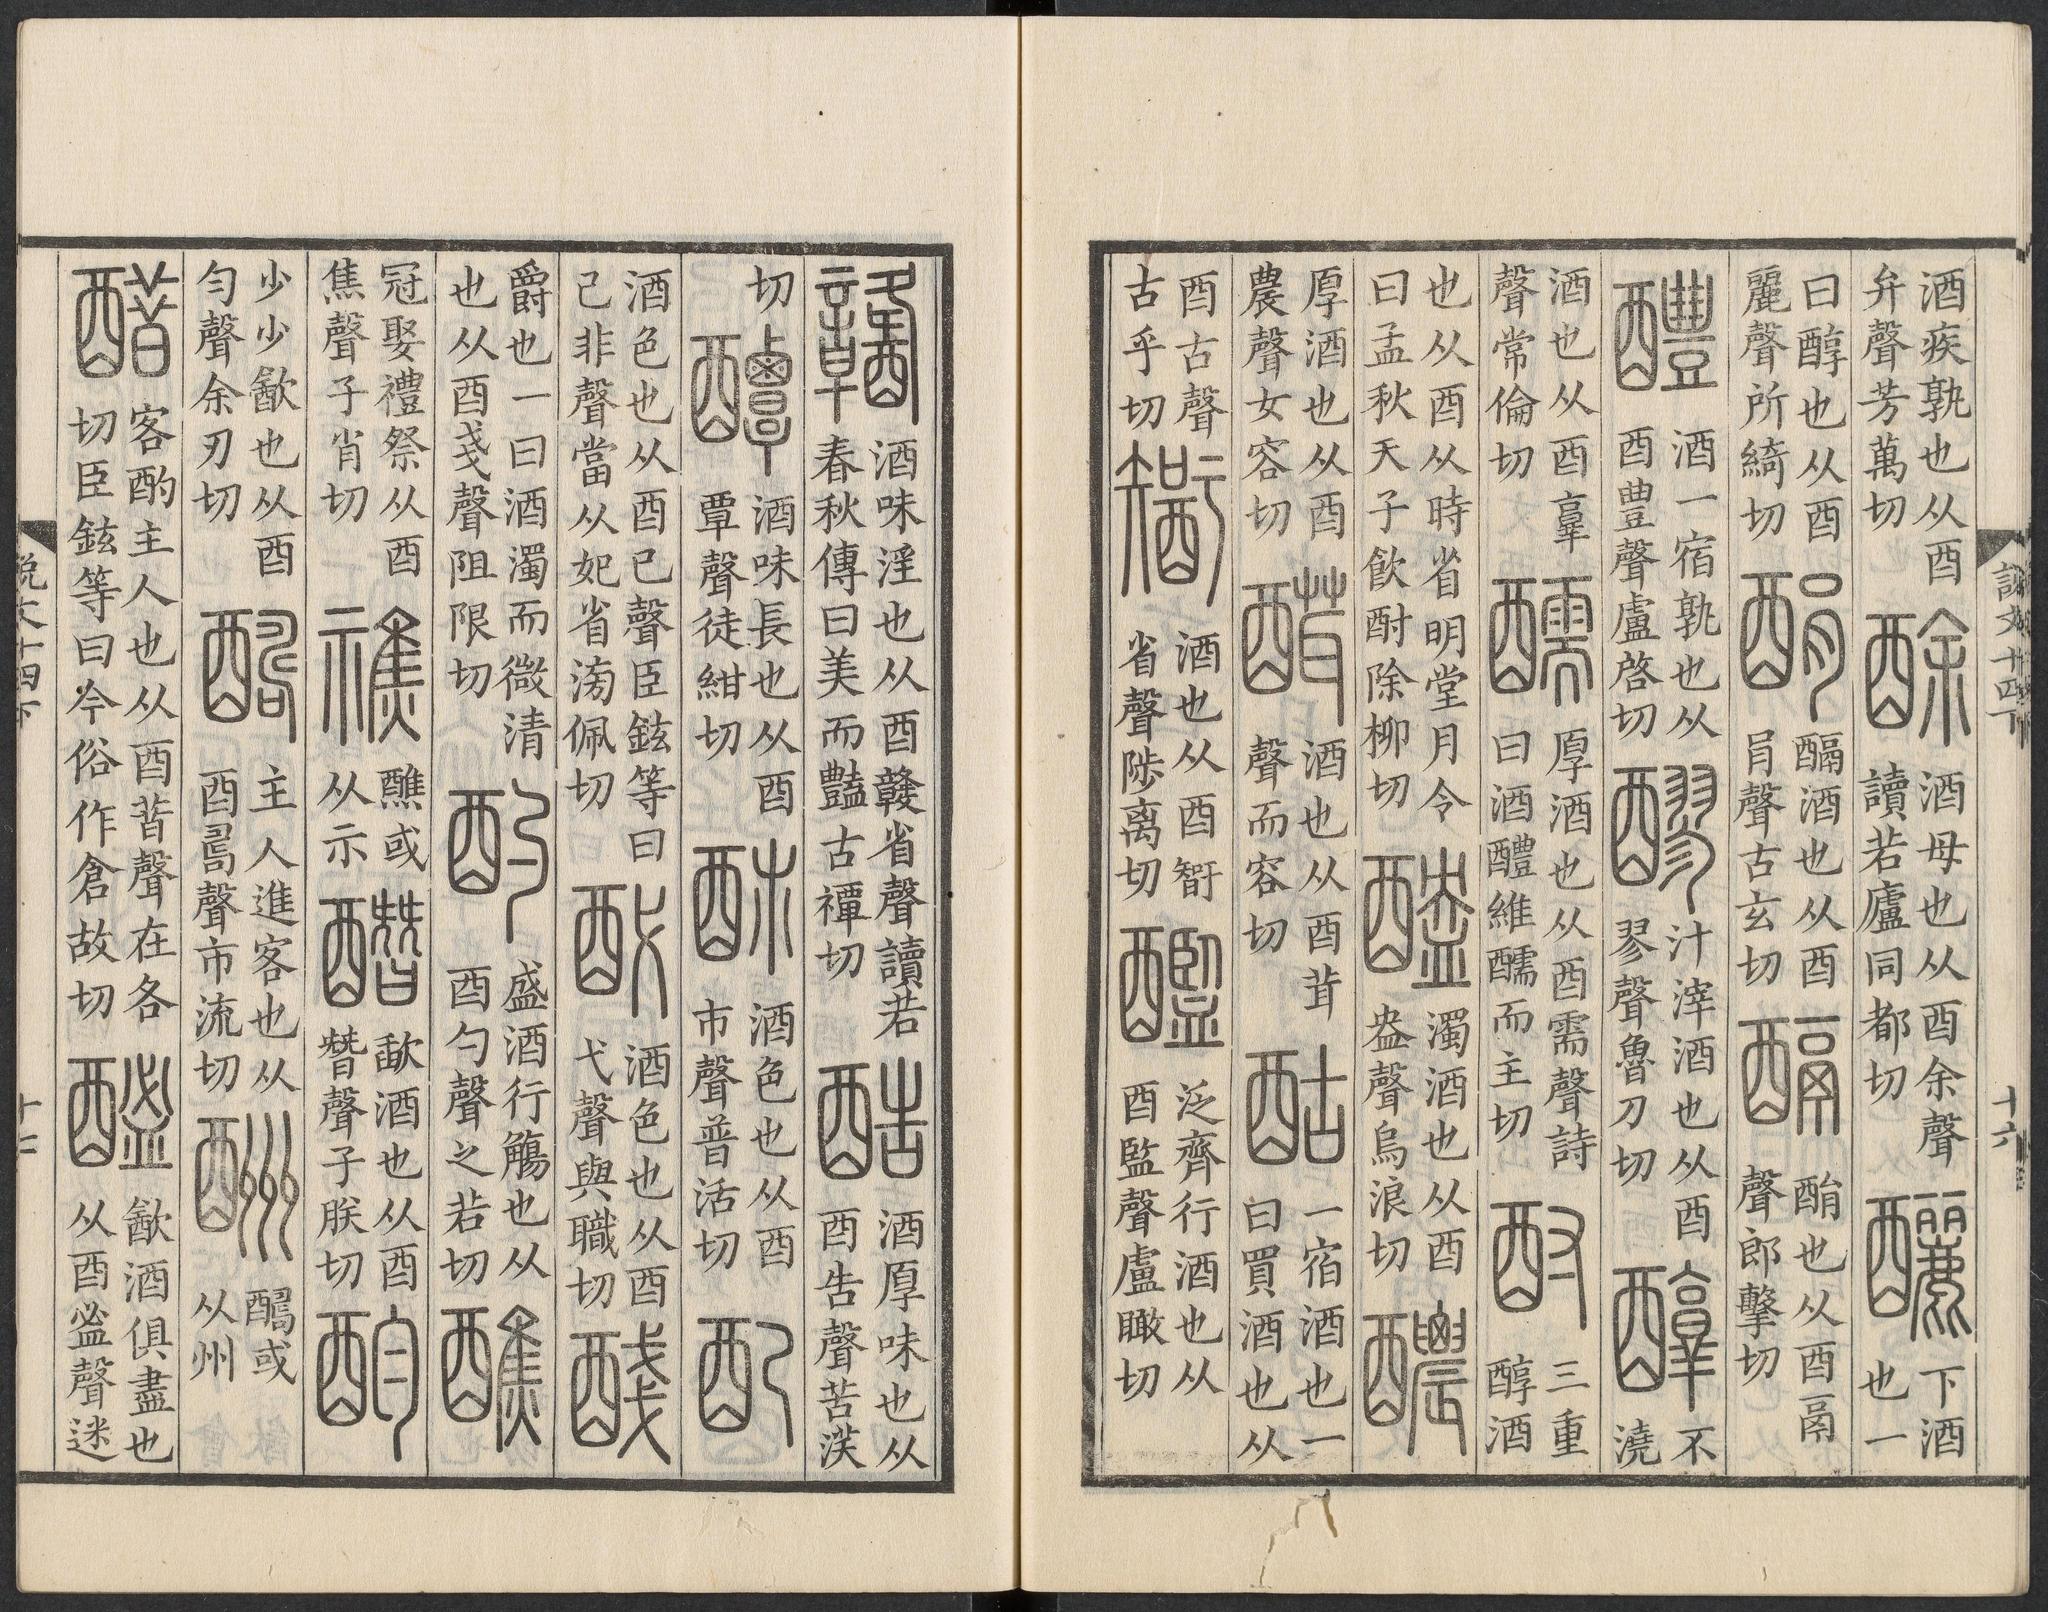 酒疾孰也从酉弁聲芳萬切 酴 酒母也从酉余聲讀若廬同都切 釃 下酒也一
曰醇也从酉麗聲所綺切 酒也从酉肙聲古玄切 也从酉鬲聲郎擊切
醴 酒一宿孰也从酉豊聲盧啓切 醪 汁滓酒也从酉翏聲魯刀切 醇 不澆
酒也从酉𦎫聲常倫切 醹 厚酒也从酉需聲詩曰酒醴維醹而主切 酎 三重醇酒
也从酉从時省明堂月令曰孟秋天子飲酎除柳切 醠 濁酒也从酉盎聲烏浪切 醲
厚酒也从酉農聲女容切 酒也从酉茸聲而容切 酤 一宿酒也一曰買酒也从
酉古聲古乎切 酒也从酉省聲陟离切 泛齊行酒也从酉監聲盧瞰切
說文十四下 十六
酒味淫也从酉竷省聲讀若春秋傳曰美而豔古禫切 酷 酒厚味也从酉告聲苦沃
切 醰 酒味長也从酉覃聲徒紺切 酒色也从酉巿聲普活切 配
酒色也从酉己聲臣鉉等曰己非聲當从妃省滂佩切 酒色也从酉弋聲與職切 醆
爵也一曰酒濁而微清也从酉戔聲阻限切 酌 盛酒行觴也从酉勺聲之若切 醮
冠娶禮祭从酉焦聲子肖切 醮或从示 歃酒也从酉朁聲子朕切 酌
少少歙也从酉勻聲余刃切 主人進客也从酉聲市流切 酬 或从州
醋 客酌主人也从酉昔聲在各切臣鉉等曰今俗作倉故切 歙酒俱盡也从酉𥁑聲迷
說文十四下 十七